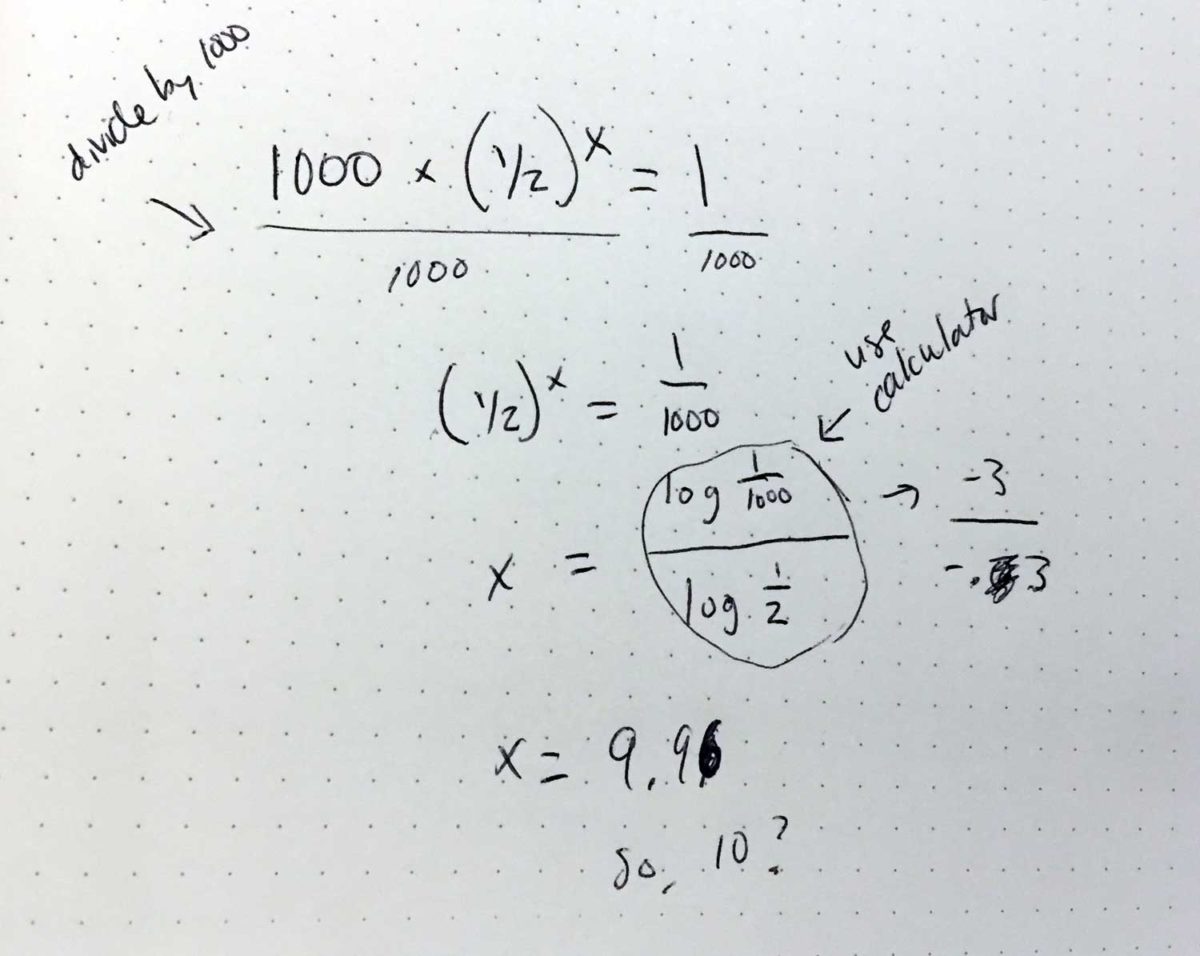 divide by 1000
1000 × (1/2)^x = 1
1000 1000
(1/2)^x = 1/1000
use
calculator
x = log 1/1000 / log 1/2 → -3 / -.3
x = 9.96
so, 10?